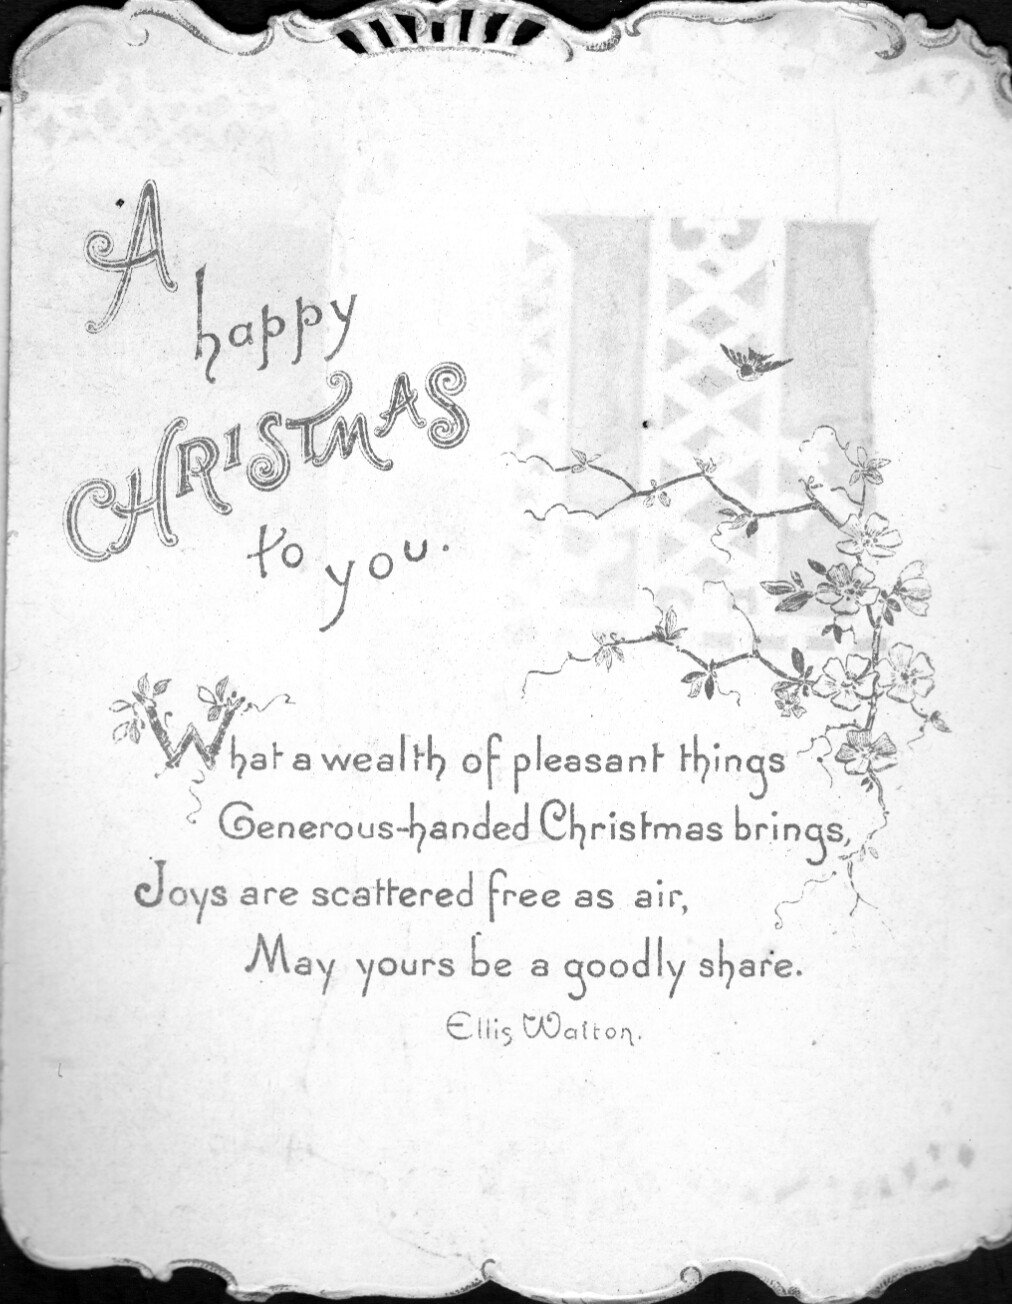 A
happy
CHRISTMAS
to you.
What a wealth of pleasant things
Generous-handed Christmas brings,
Joys are scattered free as air,
May yours be a goodly share.
Ellis Walton.